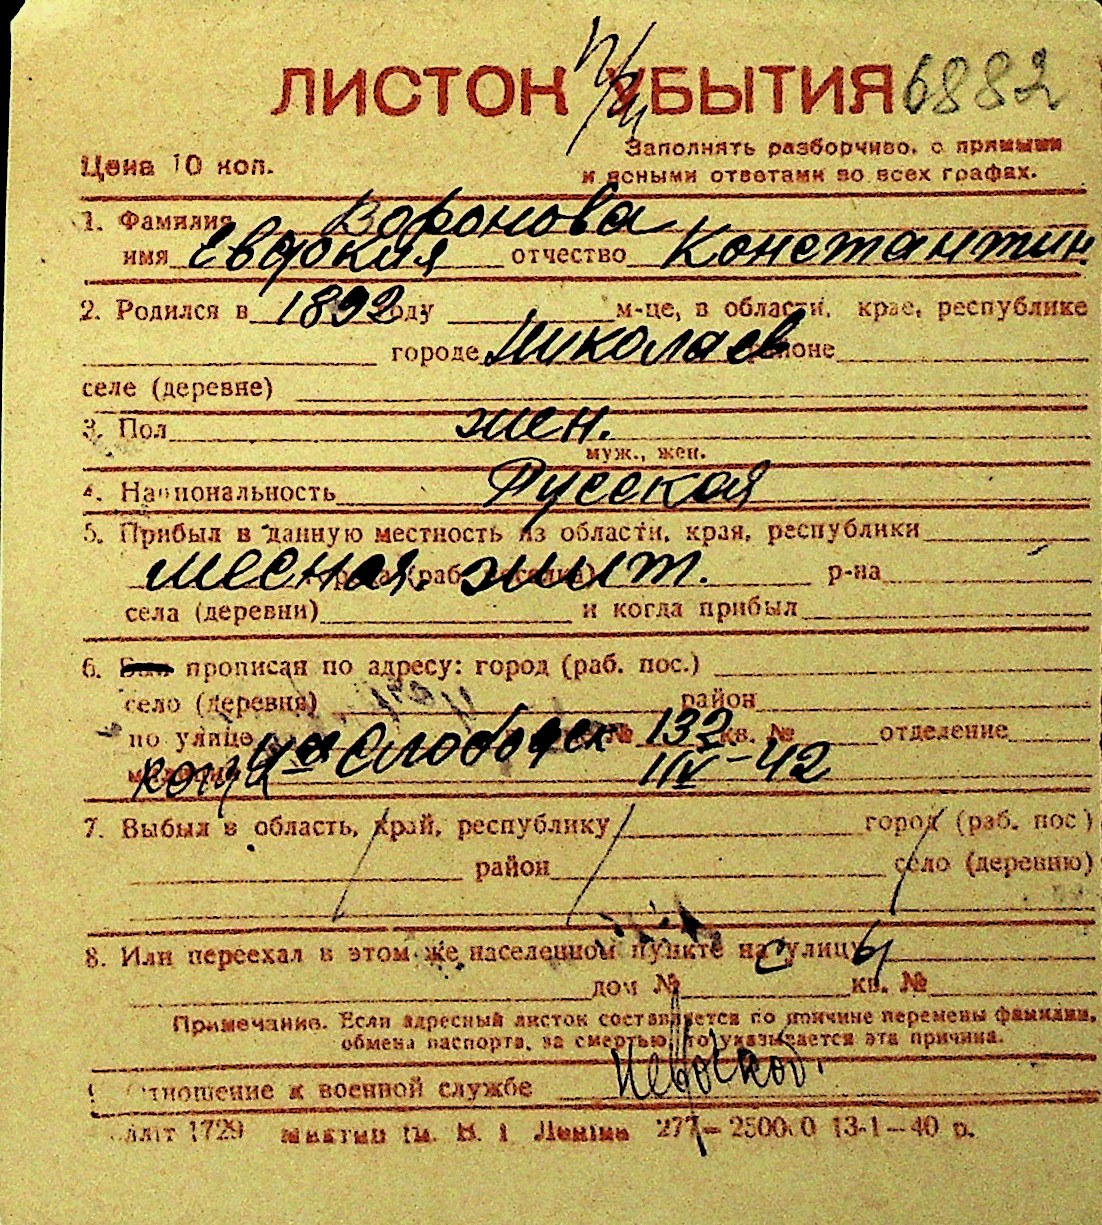 ЛИСТОК УБЫТИЯ 6882
Цена 10 коп.
Заполнять разборчиво, с прямыми
и ясными ответами во всех графах.
1. Фамилия Воронова
имя Евдокия отчество Константин.
2. Родился в 1892 году м-це, в области, крае, республике
городе Николаев районе
селе (деревне)
3. Пол жен.
муж., жен.
4. Национальность Русская
5. Прибыл в данную местность из области, края, республики
месная жит. р-на
села (деревни) и когда прибыл
6. прописан по адресу: город (раб. пос.)
село (деревня) район
по улице 4ая Слободск № 132 кв. № отделение
IV-42
7. Выбыл в область, край, республику город (раб. пос)
район село (деревню)
8. Или переехал в этом же населенном пункте на с улицы
дом № кв. №
Примечание. Если адресный листок составляется по причине перемены фамилии,
обмена паспорта, за смертью, то указывается эта причина.
Отношение к военной службе
1729 277 – 2500.0 13-1–40 р.